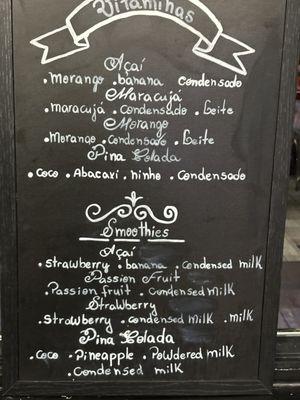 Vitaminas
Açaí
.morango .banana condensado
Maracujá
.maracujá .Condensado .Leite
Morango
.Morango .condensado .Leite
Pina Colada
.Coco .Abacaxi .Ninho .Condensado
Smoothies
Açaí
.Strawberry .banana .condensed milk
Passion Fruit
.Passion fruit .Condensed Milk
Strawberry
.Strowberry .condensed milk .milk
Pina Colada
.Coco .Pineapple .Powdered milk
.Condensed milk